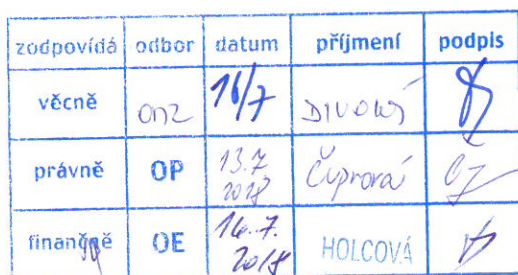 zodpovídá odbor datum příjmení podpis
věcně 16/7
právně OP 13.7. 2018 Čuprová
finančně OE 16.7. 2018 HOLCOVÁ